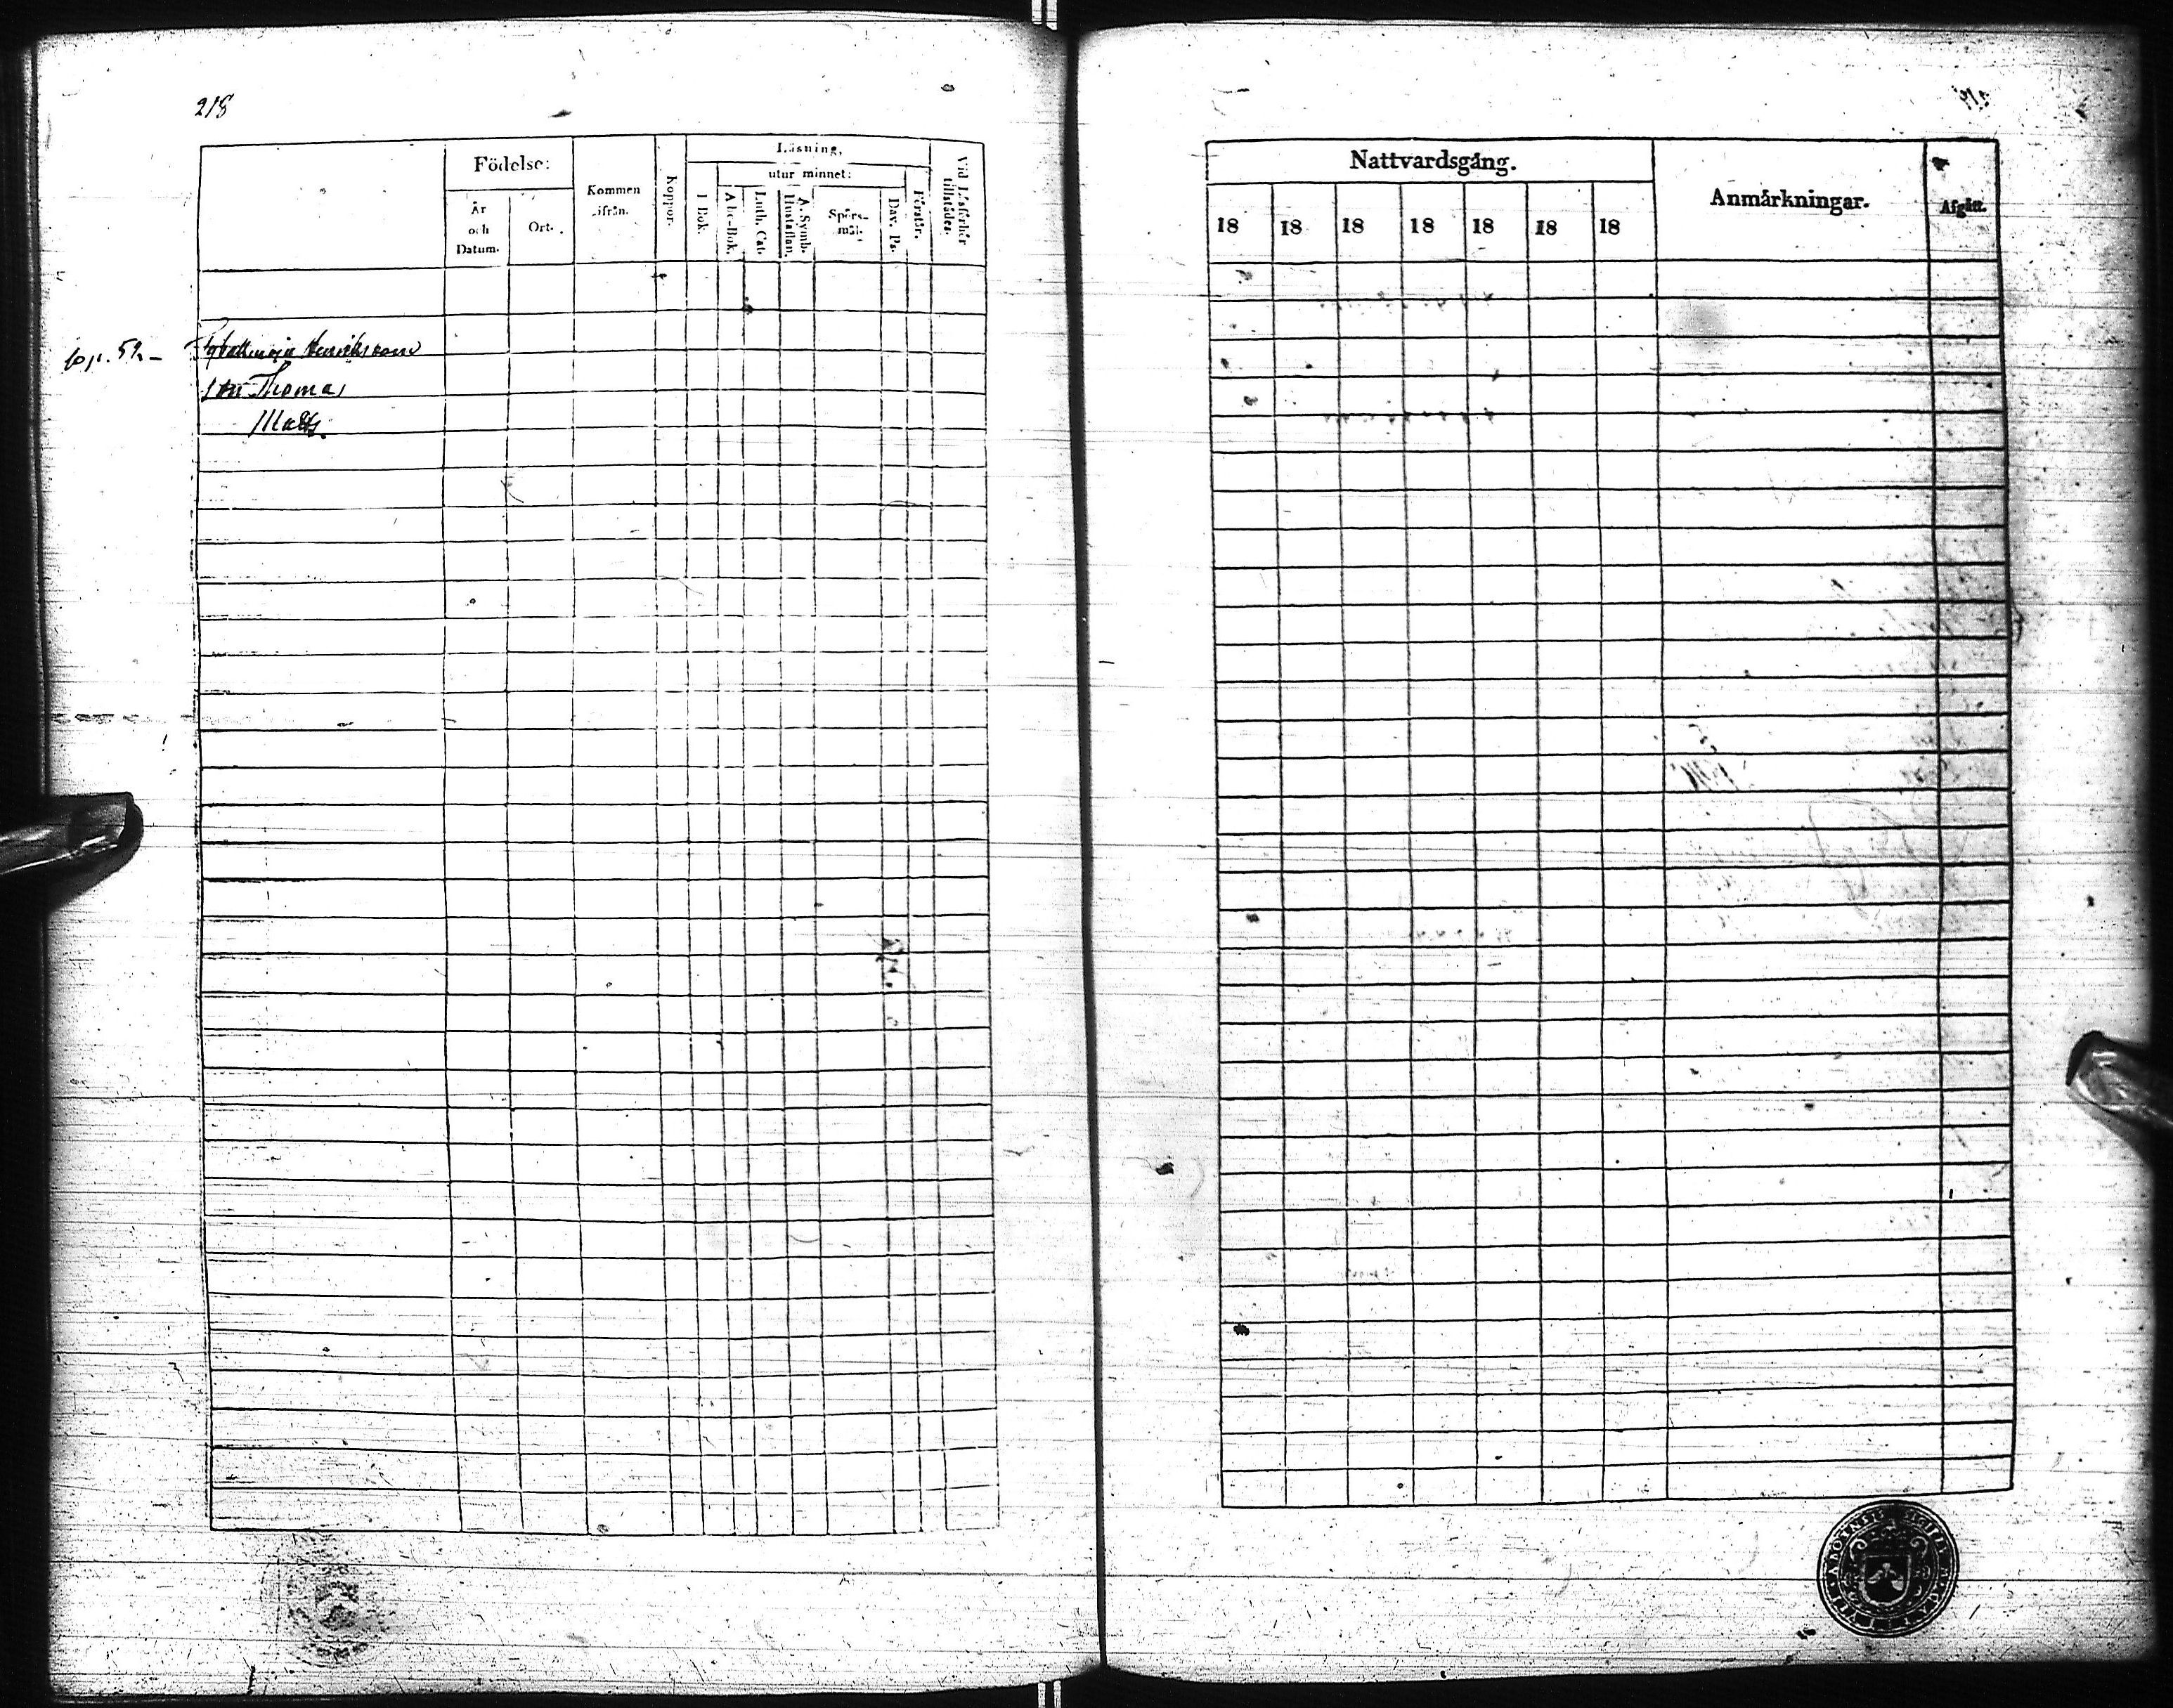 218
Födelse:
År och Datum.
Ort.
Kommen ifrån.
Koppor.
Läsning,
utur minnet:
I Bok.
Abc-Bok.
Luth. Cat.
Hustaflan.
A. Symb.
Spörs-
mål.
Dav. Ps.
Förstår.
Vid Läsförhör
tillstädes.
p. 52 –
Henriksson
son Thomas
Matts.
Nattvardsgång.
18 18 18 18 18 18 18
Anmärkningar.
Afgått.